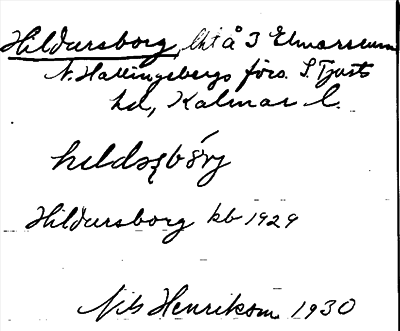 Hildursborg, lht å 3 Elmarsum
N. Hallingebergs förs. S. Tjusts
hd, Kalmar l.
Hildursborg kb 1929
Nils Henrikson 1930